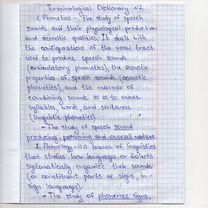 Terminological Dictionary №2
1. Phonetics - the study of speech
sounds and their physiological production
and acoustic qualities. It deals with
the configurations of the vocal tract
used to produce speech sounds
(articulatory phonetics), the acoustic
properties of speech sounds (acoustic
phonetics), and the manner of
combining sounds so as to make
syllables, words, and sentences
(linguistic phonetics).
- The study of speech sound
producing, perceiving and overall nature.
2. Phonology - is a branch of linguistics
that studies how languages or dialects
systematically organize their sounds
(or constituent parts of signs, in
sign languages).
- The study of phonemes signs,